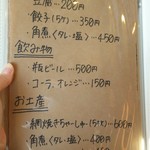 豆腐―200円
餃子(5ヶ)―350円
角煮(タレ・塩)―450円
飲み物
瓶ビール―500円
コーラ、オレンジ―150円
お土産
網焼きちゃーしゅー(5ヶ)―600円
角煮(タレ・塩)―400円